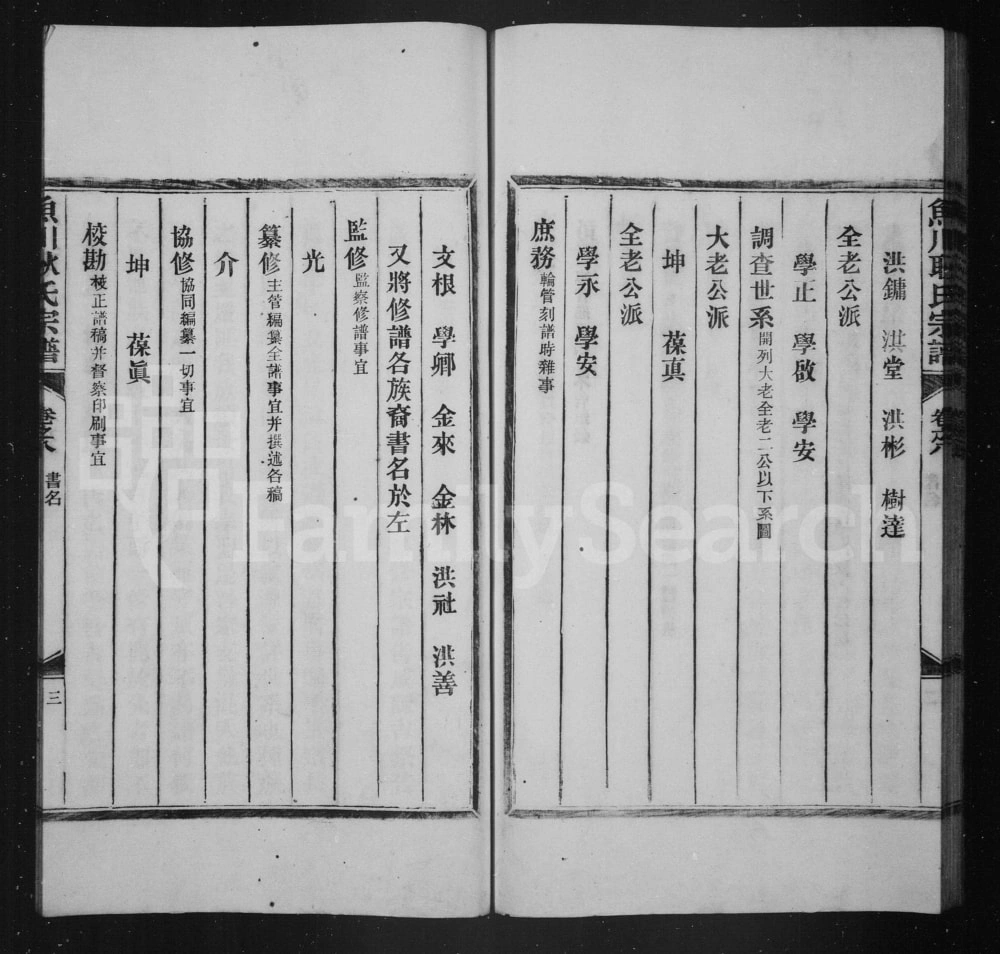 洪鏞 洪堂 洪彬 樹達
全老公派
學正 學啟 學安
調查世系開列大老全老二公以下系圖
大老公派
坤 葆眞
全老公派
學示 學安
庶務輪管刻譜時雜事
文根 學卿 金來 金林 洪社 洪善
又將修譜各族裔書名於左
監修監察修譜事宜
光
纂修主管編纂全譜事宜并撰述各稿
介
協修協同編纂一切事宜
坤 葆眞
校勘校正譜稿并督察印刷事宜
魚川耿氏宗譜 卷之八 書名 三
FamilySearch